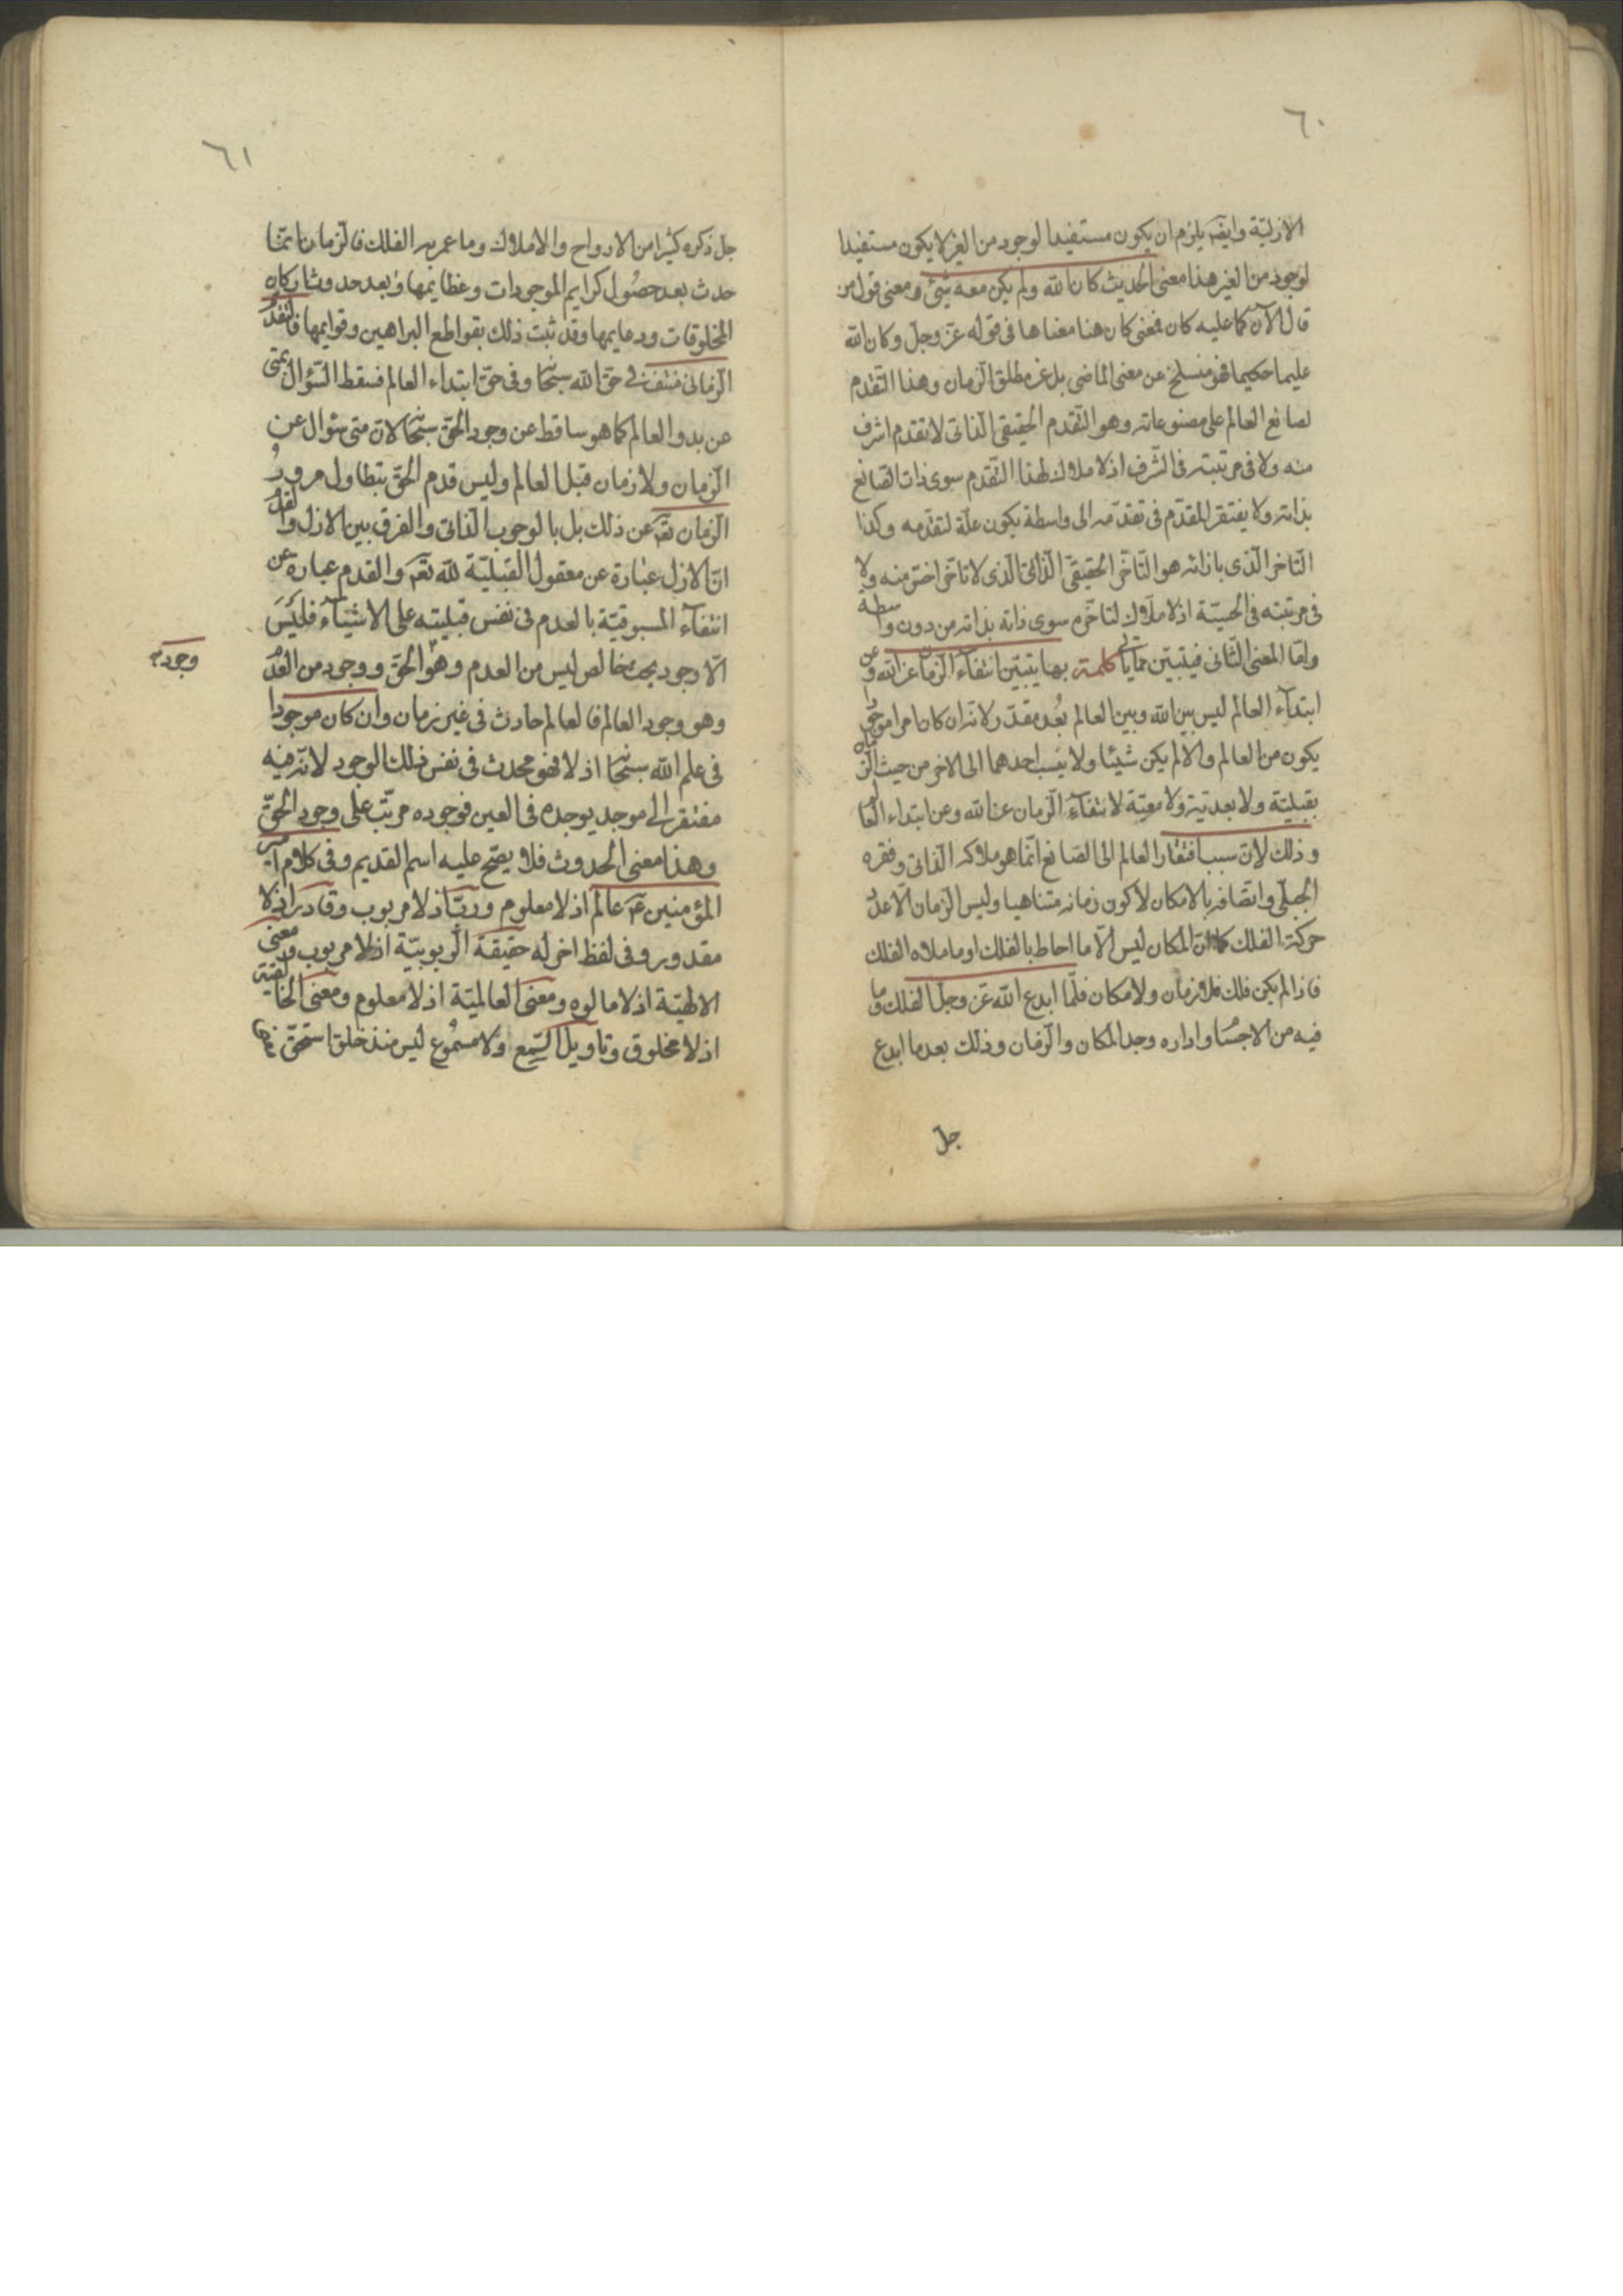 ٦٠
الازليّة وايضَ يلزم ان يكون مستفيدا لوجود من الغير لا يكون مستفيدا
لوجود من الغير هذا معنى الحديث كان الله ولم يكن معه شئ ومعنى قول من
قال الآن كما عليه كان فمعنى كان هنا معناها فى قوله عزّ وجلّ وكان الله
عليما حكيما فهو منسلخ عن معنى الماضى بل عن مطلق الزمان وهذا التقدم
لصانع العالم على مصنوعاته وهو التقدم الحقيقى الذاتى لا تقدم اشرف
منه ولا فى مرتبته فى الشرف اذ لا ملاك لهذا التقدم سوى ذات الصانع
بذاته ولا يفتقر المقدّم فى تقدّمه الى واسطة يكون علّة لتقدّمه وكذا
التاخر الذى بازائه هو التّاخّر الحقيقى الذاتى الذى لا تاخّر اخسّ منه ولا
فى مرتبته فى الخسيّة اذ لا ملاك لتاخّره سوى ذاته بذاته من دون واسطة
وامّا المعنى الثانى فيتبيّن ممّا ياتى كلمة بها يتبيّن انتفاء الزمان عن الله وعن
ابتداء العالم ليس بين الله وبين العالم بُعد مقدّر لانّه ان كان امرا موجودا
يكون من العالم والا لم يكن شيئا ولا ينسب احدهما الى الاخر من حيث الزمان
بقبليّة ولا بعديّة ولا معيّة لانتفاء الزمان عن الله وعن ابتداء العالم
وذلك لان سبب افتقار العالم الى الصانع انّما هو ملاكه الذاتى وفقره
الجبلّى واتصافه بالامكان لا كون زمانه متناهيا وليس الزمان الّا عدد
حركة الفلك كما انّ المكان ليس الّا ما احاط بالفلك او ما ملاه الفلك
فاذا لم يكن فلك فلا زمان ولا مكان فلمّا ابدع الله عزّ وجلّ الفلك وما
فيه من الاجسام واداره وجد المكان والزمان وذلك بعد ما ابدع
جل
٦١
جلّ ذكره كثيرا من الارواح والاملاك وما عمر به الفلك فالزمان انّما
حدث بعد حصول كرايم الموجودات وعظايمها وبعد حدوث اركان
المخلوقات ودعايمها وقد ثبت ذلك بقواطع البراهين وقوايمها فالتقدّم
الزمانى منتف فى حق الله سبحانه وفى حق ابتداء العالم فسقط السّؤال بمتى
عن بدو العالم كما هو ساقط عن وجود الحق سبحانه لان متى سؤال عن
الزمان ولا زمان قبل العالم وليس قدم الحق بتطاول مرور
الزمان تعَ عن ذلك بل بالوجوب الذاتى والفرق بين الازل والقدم
انّ الازل عبارة عن معقول القبليّة لله تعَ والقدم عبارة عن
انتفاء المسبوقيّة بالعدم فى نفس قبليته على الاشياء فليس
الّا وجود بحت خالص ليس من العدم وهو الحق ووجود من العدم
وجوده
وهو وجود العالم فالعالم حادث فى غير زمان وان كان موجودا
فى علم الله سبحانه اذ لا فهو محدث فى نفس ذلك الوجود لانه فيه
مفتقر الى موجد يوجده فى العين فوجوده مرتّب على وجود الحقّ
وهذا معنى الحدوث فلا يصحّ عليه اسم القديم وفى كلام امير
المؤمنين عَ عالم اذ لا معلوم وربّ اذ لا مربوب وقادر اذ لا
مقدور وفى لفظ اخر له حقيقة الربوبيّة اذ لا مربوب ومعنى
الالهيّة اذ لا مالوه ومعنى العالميّة اذ لا معلوم ومعنى الخالقيّة
اذ لا مخلوق وتاويل السّمع ولا مسموع ليس منذ خلق استحقّ